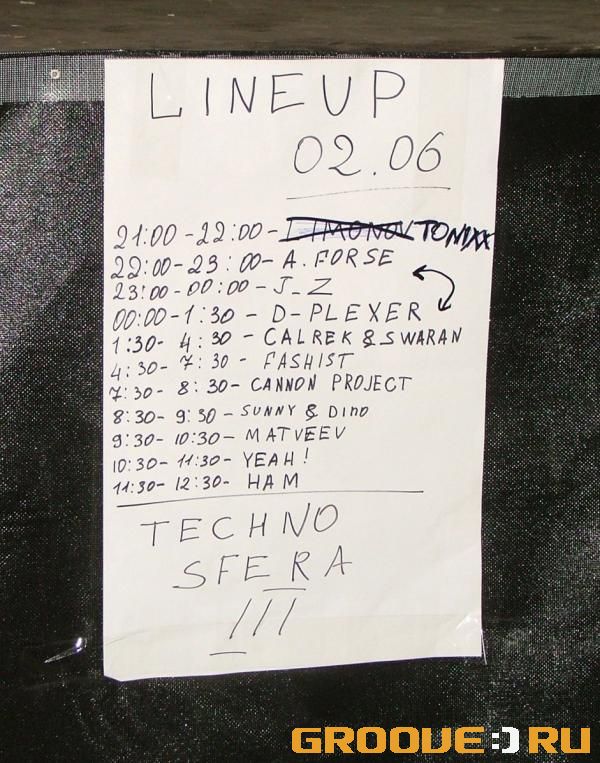 LINEUP
02.06
21:00-22:00- LIMONOV TONIXX
22:00-23:00- A.FORSE
23:00-00:00-J_Z
00:00-1:30 - D-PLEXER
1:30- 4:30 - CALREK & SWARAN
4:30- 7:30 - FASHIST
7:30- 8:30- CANNON PROJECT
8:30- 9:30 - SUNNY & DINO
9:30- 10:30- MATVEEV
10:30- 11:30- YEAH!
11:30- 12:30- HAM
TECHNO
SFERA
III
GROOVE:)RU